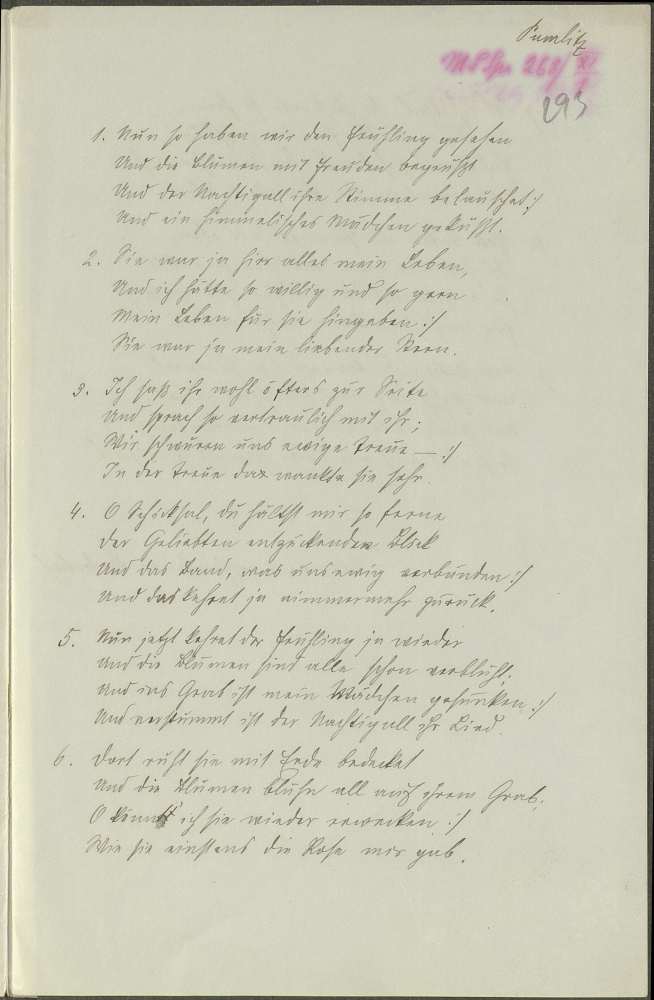 Pumlitz
293
1. Nun so haben wir den Frühling gesehen
Und die Blumen mit Freuden begrüßt
Und der Nachtigall ihre Stimme belauschet :/
Und ein himmelisches Mädchen geküßt.
2. Sie war ja hier alles mein Leben,
Und ich hätte so willig und so gern
Mein Leben für sie hingeben :/
Sie war ja mein liebender Stern.
3. Ich saß ihr wohl öfters zur Seite
Und sprach so vertraulich mit ihr;
Wir schwuren uns ewige Treue — :/
In der Treue da wankte sie sehr.
4. O Schicksal, du hältst mir so ferne
Der Geliebten entzückenden Blick
Und das Band, was uns ewig verbunden :/
Und das kehret ja nimmermehr zurück.
5. Nun jetzt kehret der Frühling ja wieder
Und die Blumen sind alle schon verblüht;
Und ins Grab ist mein Mädchen gesunken :/
Und verstummt ist der Nachtigall ihr Lied.
6. Dort ruht sie mit Erde bedecket
Und die Blumen blühn all auf ihrem Grab;
O könnt ich sie wieder erwecken :/
Wie sie einstens die Rose mir gab.